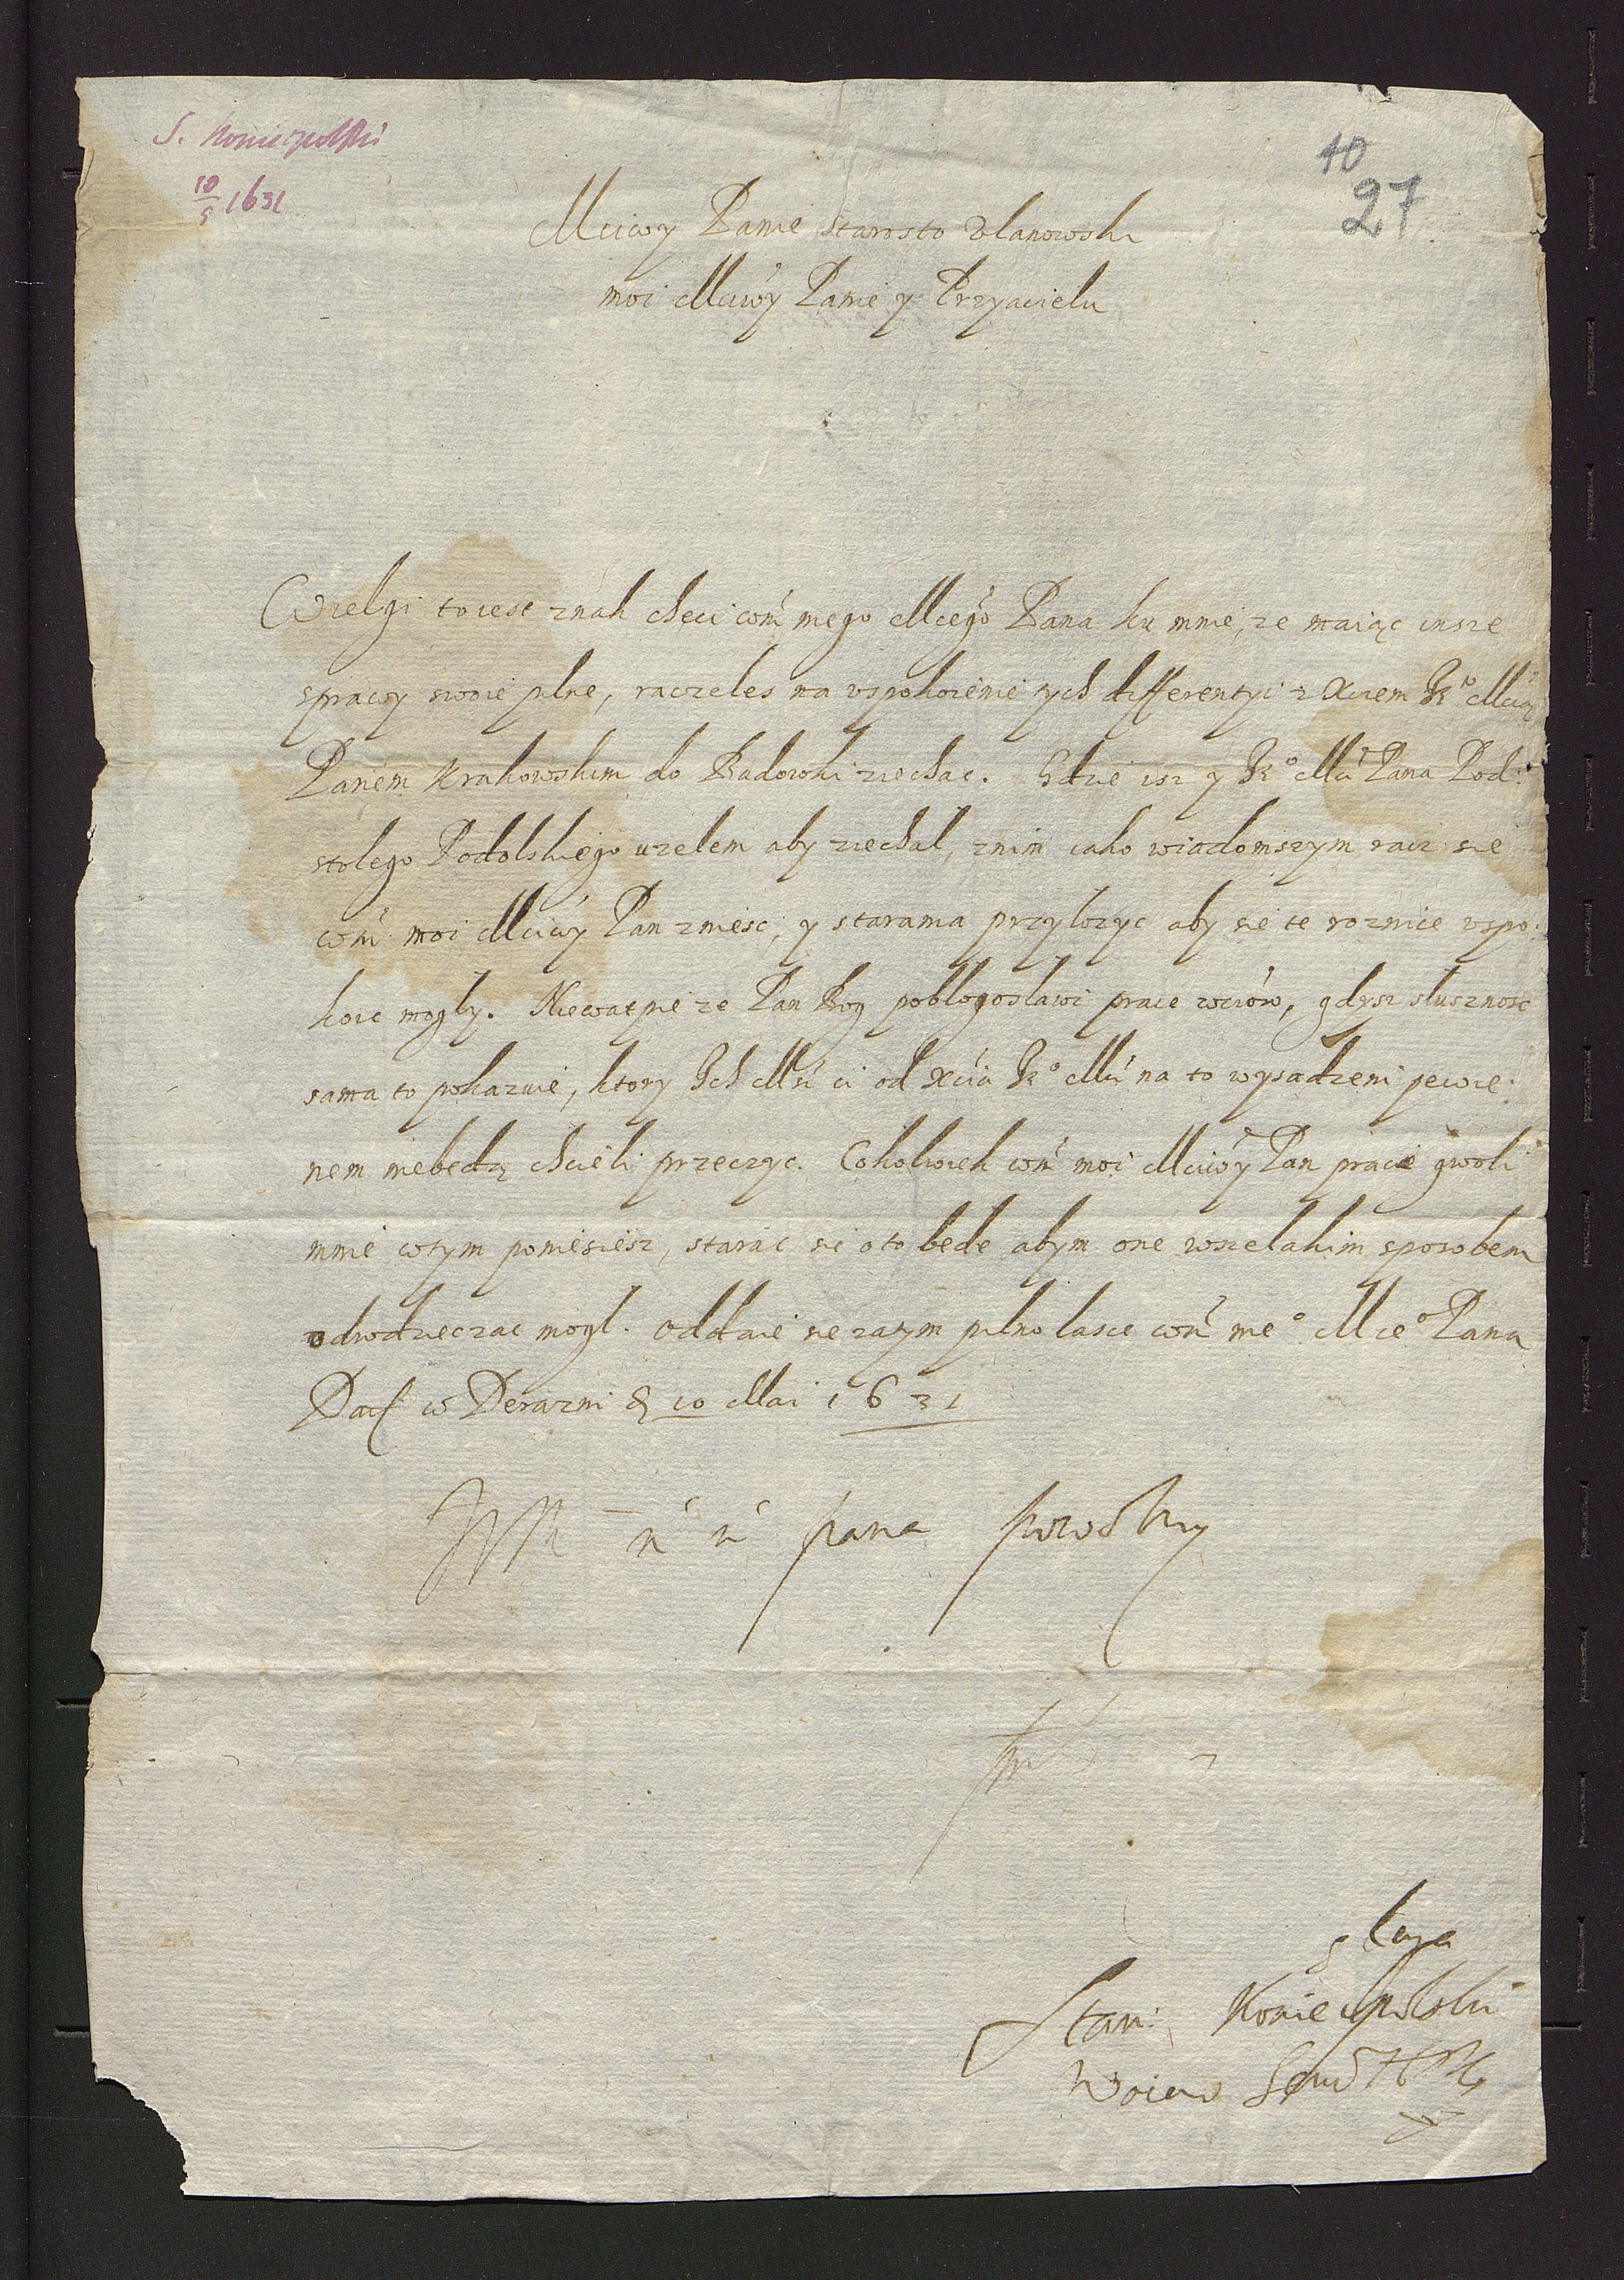 S. Koniecpolski
10
27
10/5 1631
Mciwy Panie Starosto Vlanowski
moi Mciwy Panie y Przyiacielu
Wielgi to iest znak checi wm̃ mego Mcego Pana ku mnie, ze maiąc insze
sprawy swoie pilne, raczeles na vspokoienie tych differentyi z Xciem Je° Mcią
Panem Krakowskim do Badowki ziechac. Gdzie isz y Je° Mci Pana Pod:
stolego Podolskiego uzelem aby ziechal, znim iako wiadomszym racz sie
wm̃ moi Mciwy Pan zniesc, y starania przylozyc aby sie te roznice vspo:
koic mogly. Niewatpie ze Pan Bog poblogoslawi prace wciow, gdysz slusznosc
sama to pokazuie, ktory Ich Mci ci od Xcia Je° Mci na to wysadzeni pewie:
nem niebedą chcieli przeczyc. Cokolwiek wm̃ moi Mciwy Pan pracie gwoli
mnie wtym poniesiesz, starac sie o to bede abym one wszelakim sposobem
odwdzieczac mogl. Oddaie sie zatym pilno lasce wm̃ me° Mce° Pana
Dat w Derazni d 10 Mai 1631
pana powolny
sluga
Stan: Koniecpolski
Woiew Send H P K